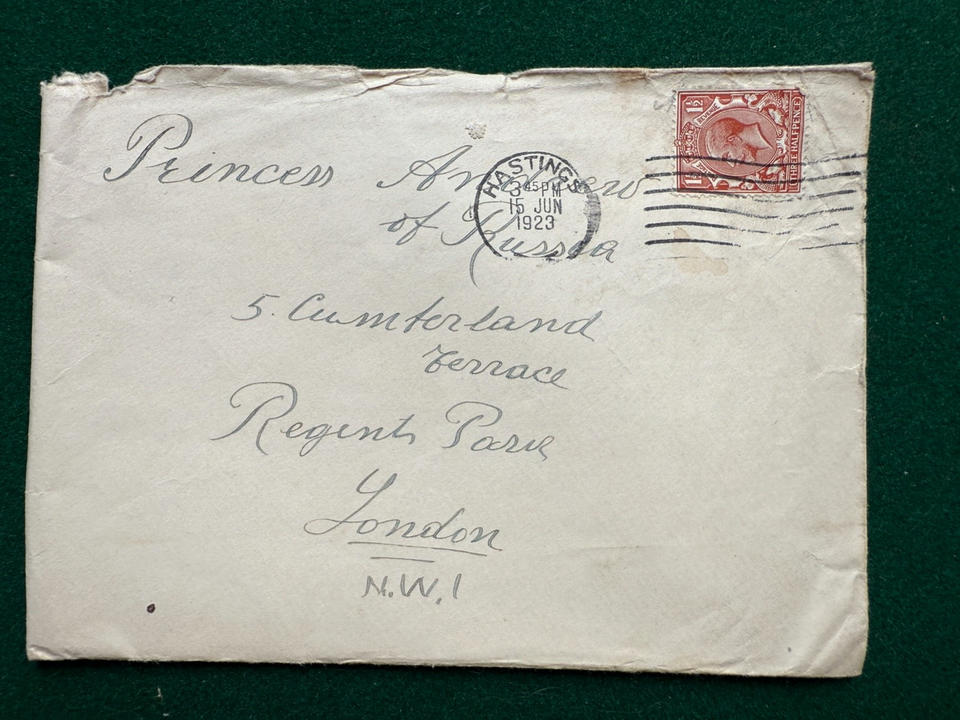 Princess Andrew
of Russia
5. Cumberland
Terrace
Regents Park
London
N.W.1
HASTINGS
3 45 PM
15 JUN
1923
1½
REVENUE
1½
THREE HALFPENCE